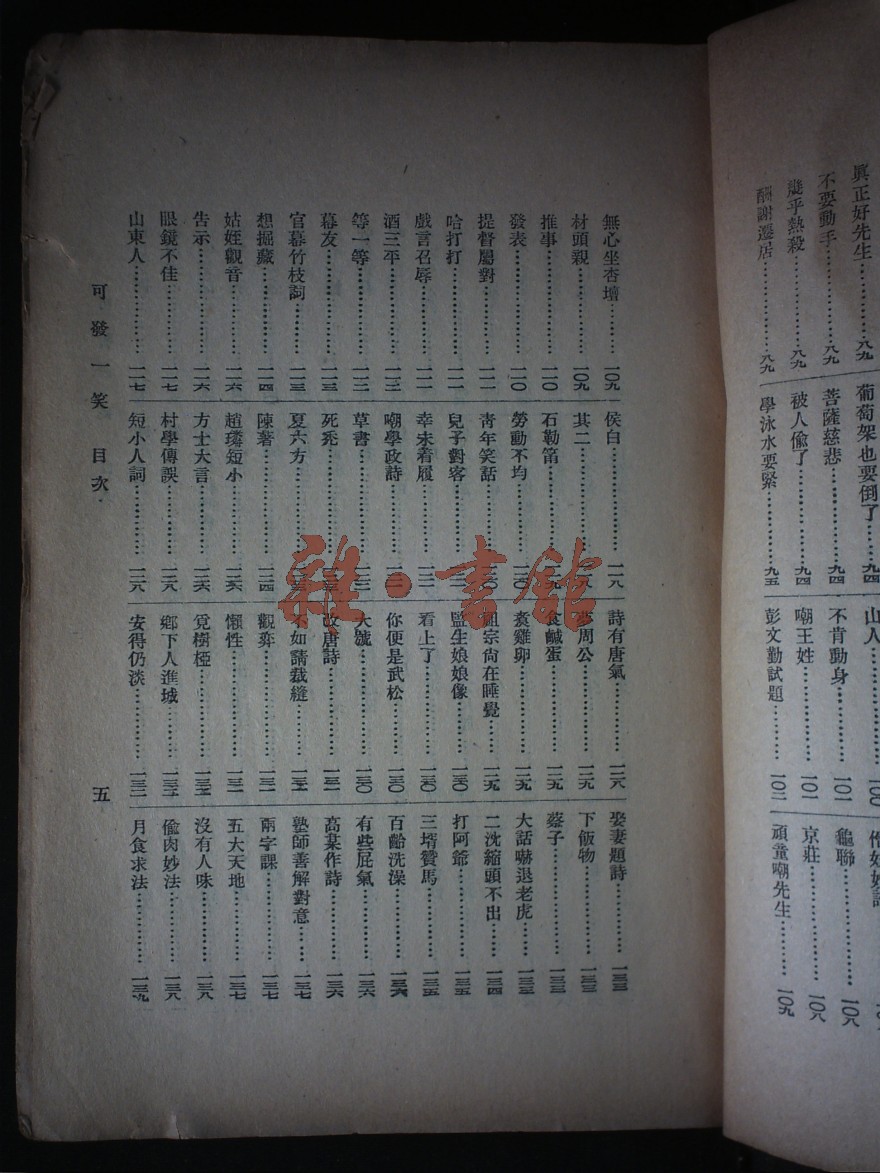 眞正好先生………八九
不要動手…………八九
幾乎熱殺…………八九
酬謝遷居…………八九
葡萄架也要倒了…九四
菩薩慈悲…………九四
被人偷了…………九四
學泳水要緊………九五
山人………………一〇〇
不肯動身…………一〇一
嘲王姓……………一〇一
彭文勤試題………一〇二
龜聯………………一〇八
京莊………………一〇八
頑童嘲先生………一〇九
無心坐杏壇………一〇九
材頭親……………一〇九
推事………………一一〇
發表………………一一〇
提督屬對…………一一一
哈打打……………一一一
戲言召辱…………一一一
酒三平……………一一二
等一等……………一一二
幕友………………一一三
官幕竹枝詞………一一三
想掘藏……………一一四
姑姪觀音…………一一六
告示………………一一六
眼鏡不佳…………一一七
山東人……………一一七
侯白………………一一八
其二………………
石勒笛……………一一九
勞動不均…………一二〇
青年笑話…………
兒子對客…………
幸未着履…………
嘲學政詩…………
草書………………
死秃………………
夏六方……………
陳著………………一二四
趙璘短小…………一二六
方士大言…………一二六
村學傳誤…………一二八
短小人詞…………一二八
詩有唐氣…………一二八
夢周公……………一二九
食鹹蛋……………一二九
袁雞卵……………一二九
祖宗尙在睡覺……一二九
監生娘娘像………一三〇
看上了……………一三〇
你便是武松………一三〇
大號………………一三〇
改唐詩……………一三一
不如請裁縫………一三一
觀弈………………一三一
懶性………………一三一
覓樹椏……………一三二
鄉下人進城………一三二
安得仍淡…………一三二
娶妻題詩…………一三三
下飯物……………一三三
蔡子………………一三三
大話嚇退老虎……一三三
二洗縮頭不出……一三四
打阿爺……………一三五
三壻贊馬…………一三五
百齡洗澡…………一三六
有些屁氣…………一三六
高某作詩…………一三六
塾師善解對意……一三七
兩字課……………一三七
五大天地…………一三七
沒有人味…………一三八
偷肉妙法…………一三八
月食求法…………一三九
可發一笑 目次
五
雜·書館